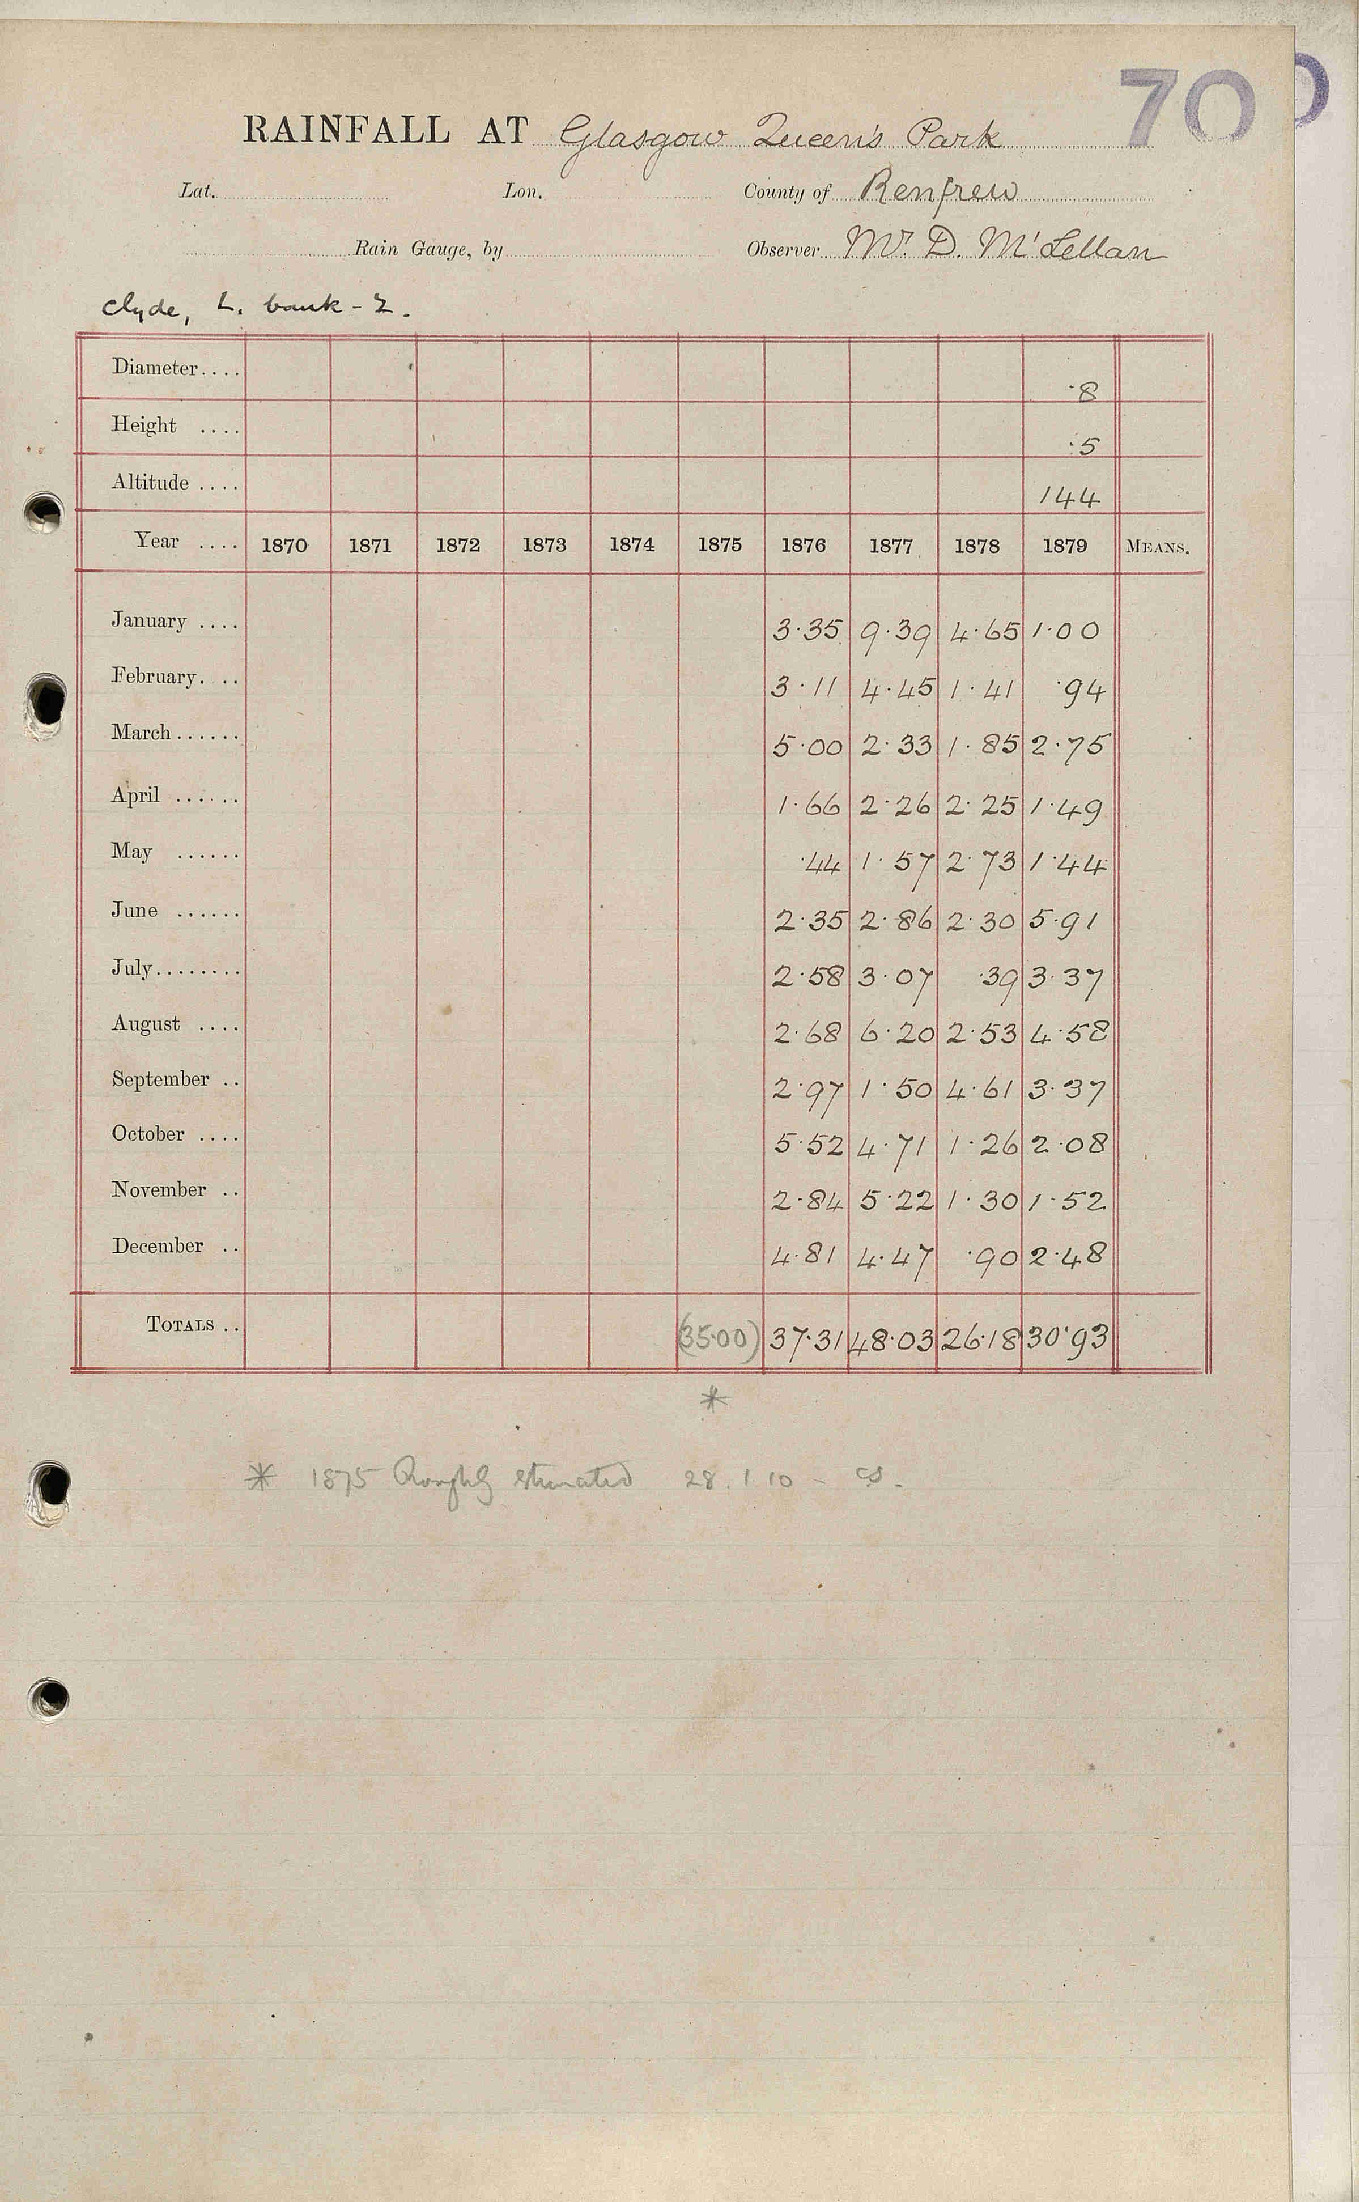 70
RAINFALL AT Glasgow Queen's Park
Lat. Lon. County of Renfrew
Rain Gauge, by Observer Mr. D. M'Lellan
Clyde, L. bank - 2.
Diameter.... ·8
Height .... ·5
Altitude .... 144
Year .... 1870 1871 1872 1873 1874 1875 1876 1877 1878 1879 MEANS.
January .... 3·35 9·39 4·65 1·00
February. .. 3·11 4·45 1·41 ·94
March...... 5·00 2·33 1·85 2·75
April ...... 1·66 2·26 2·25 1·49
May ...... ·44 1·57 2·73 1·44
June ...... 2·35 2·86 2·30 5·91
July........ 2·58 3·07 ·39 3·37
August .... 2·68 6·20 2·53 4·58
September .. 2·97 1·50 4·61 3·37
October .... 5·52 4·71 1·26 2·08
November .. 2·84 5·22 1·30 1·52
December .. 4·81 4·47 ·90 2·48
TOTALS .. (35·00) 37·31 48·03 26·18 30·93
*
* 1875 Roughly estimated 28.1.10 -